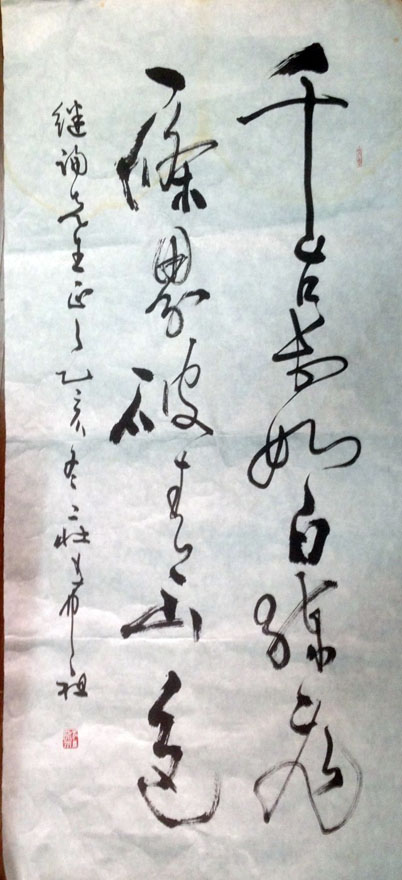 千古長如白練飛
一條界破青山色
先生正之乙亥冬